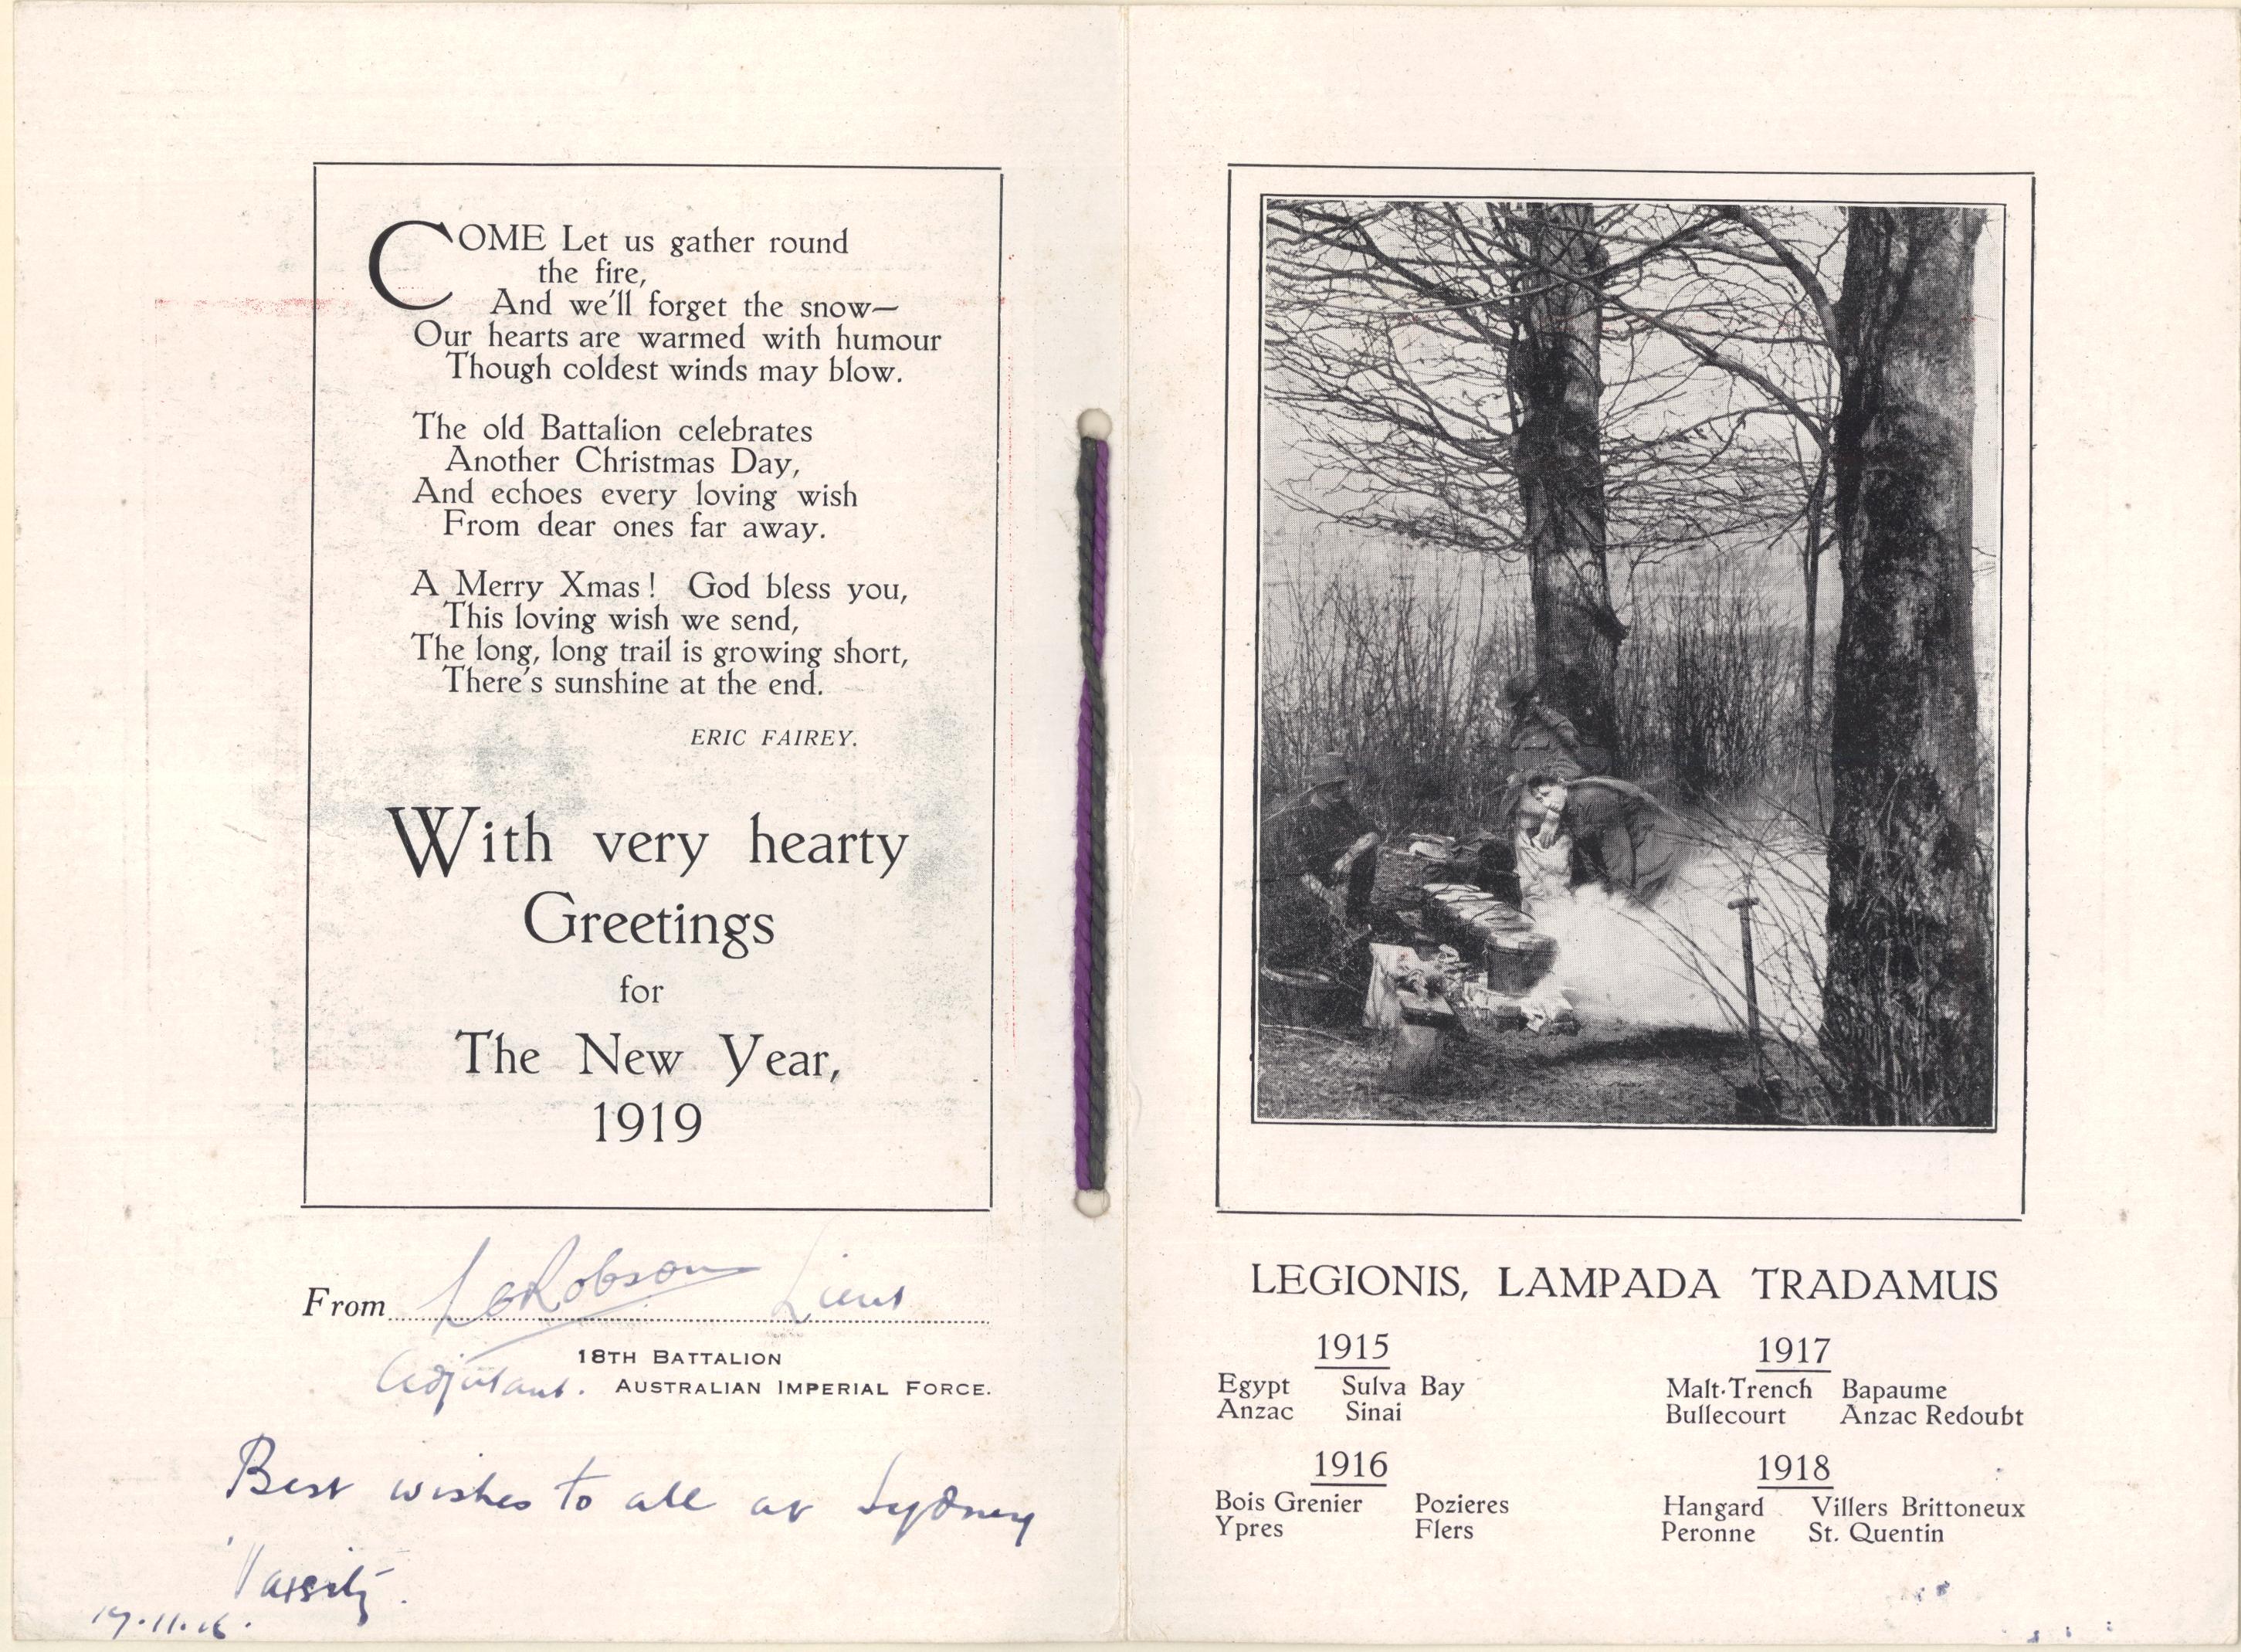 COME Let us gather round
the fire,
And we'll forget the snow—
Our hearts are warmed with humour
Though coldest winds may blow.
The old Battalion celebrates
Another Christmas Day,
And echoes every loving wish
From dear ones far away.
A Merry Xmas! God bless you,
This loving wish we send,
The long, long trail is growing short,
There's sunshine at the end.
ERIC FAIREY.
With very hearty
Greetings
for
The New Year,
1919
From Robson Lieut
18TH BATTALION
Adjutant. AUSTRALIAN IMPERIAL FORCE.
Best wishes to all at Sydney
'Varsity.
LEGIONIS, LAMPADA TRADAMUS
1915
Egypt Sulva Bay
Anzac Sinai
1916
Bois Grenier Pozieres
Ypres Flers
1917
Malt-Trench Bapaume
Bullecourt Anzac Redoubt
1918
Hangard Villers Brittoneux
Peronne St. Quentin